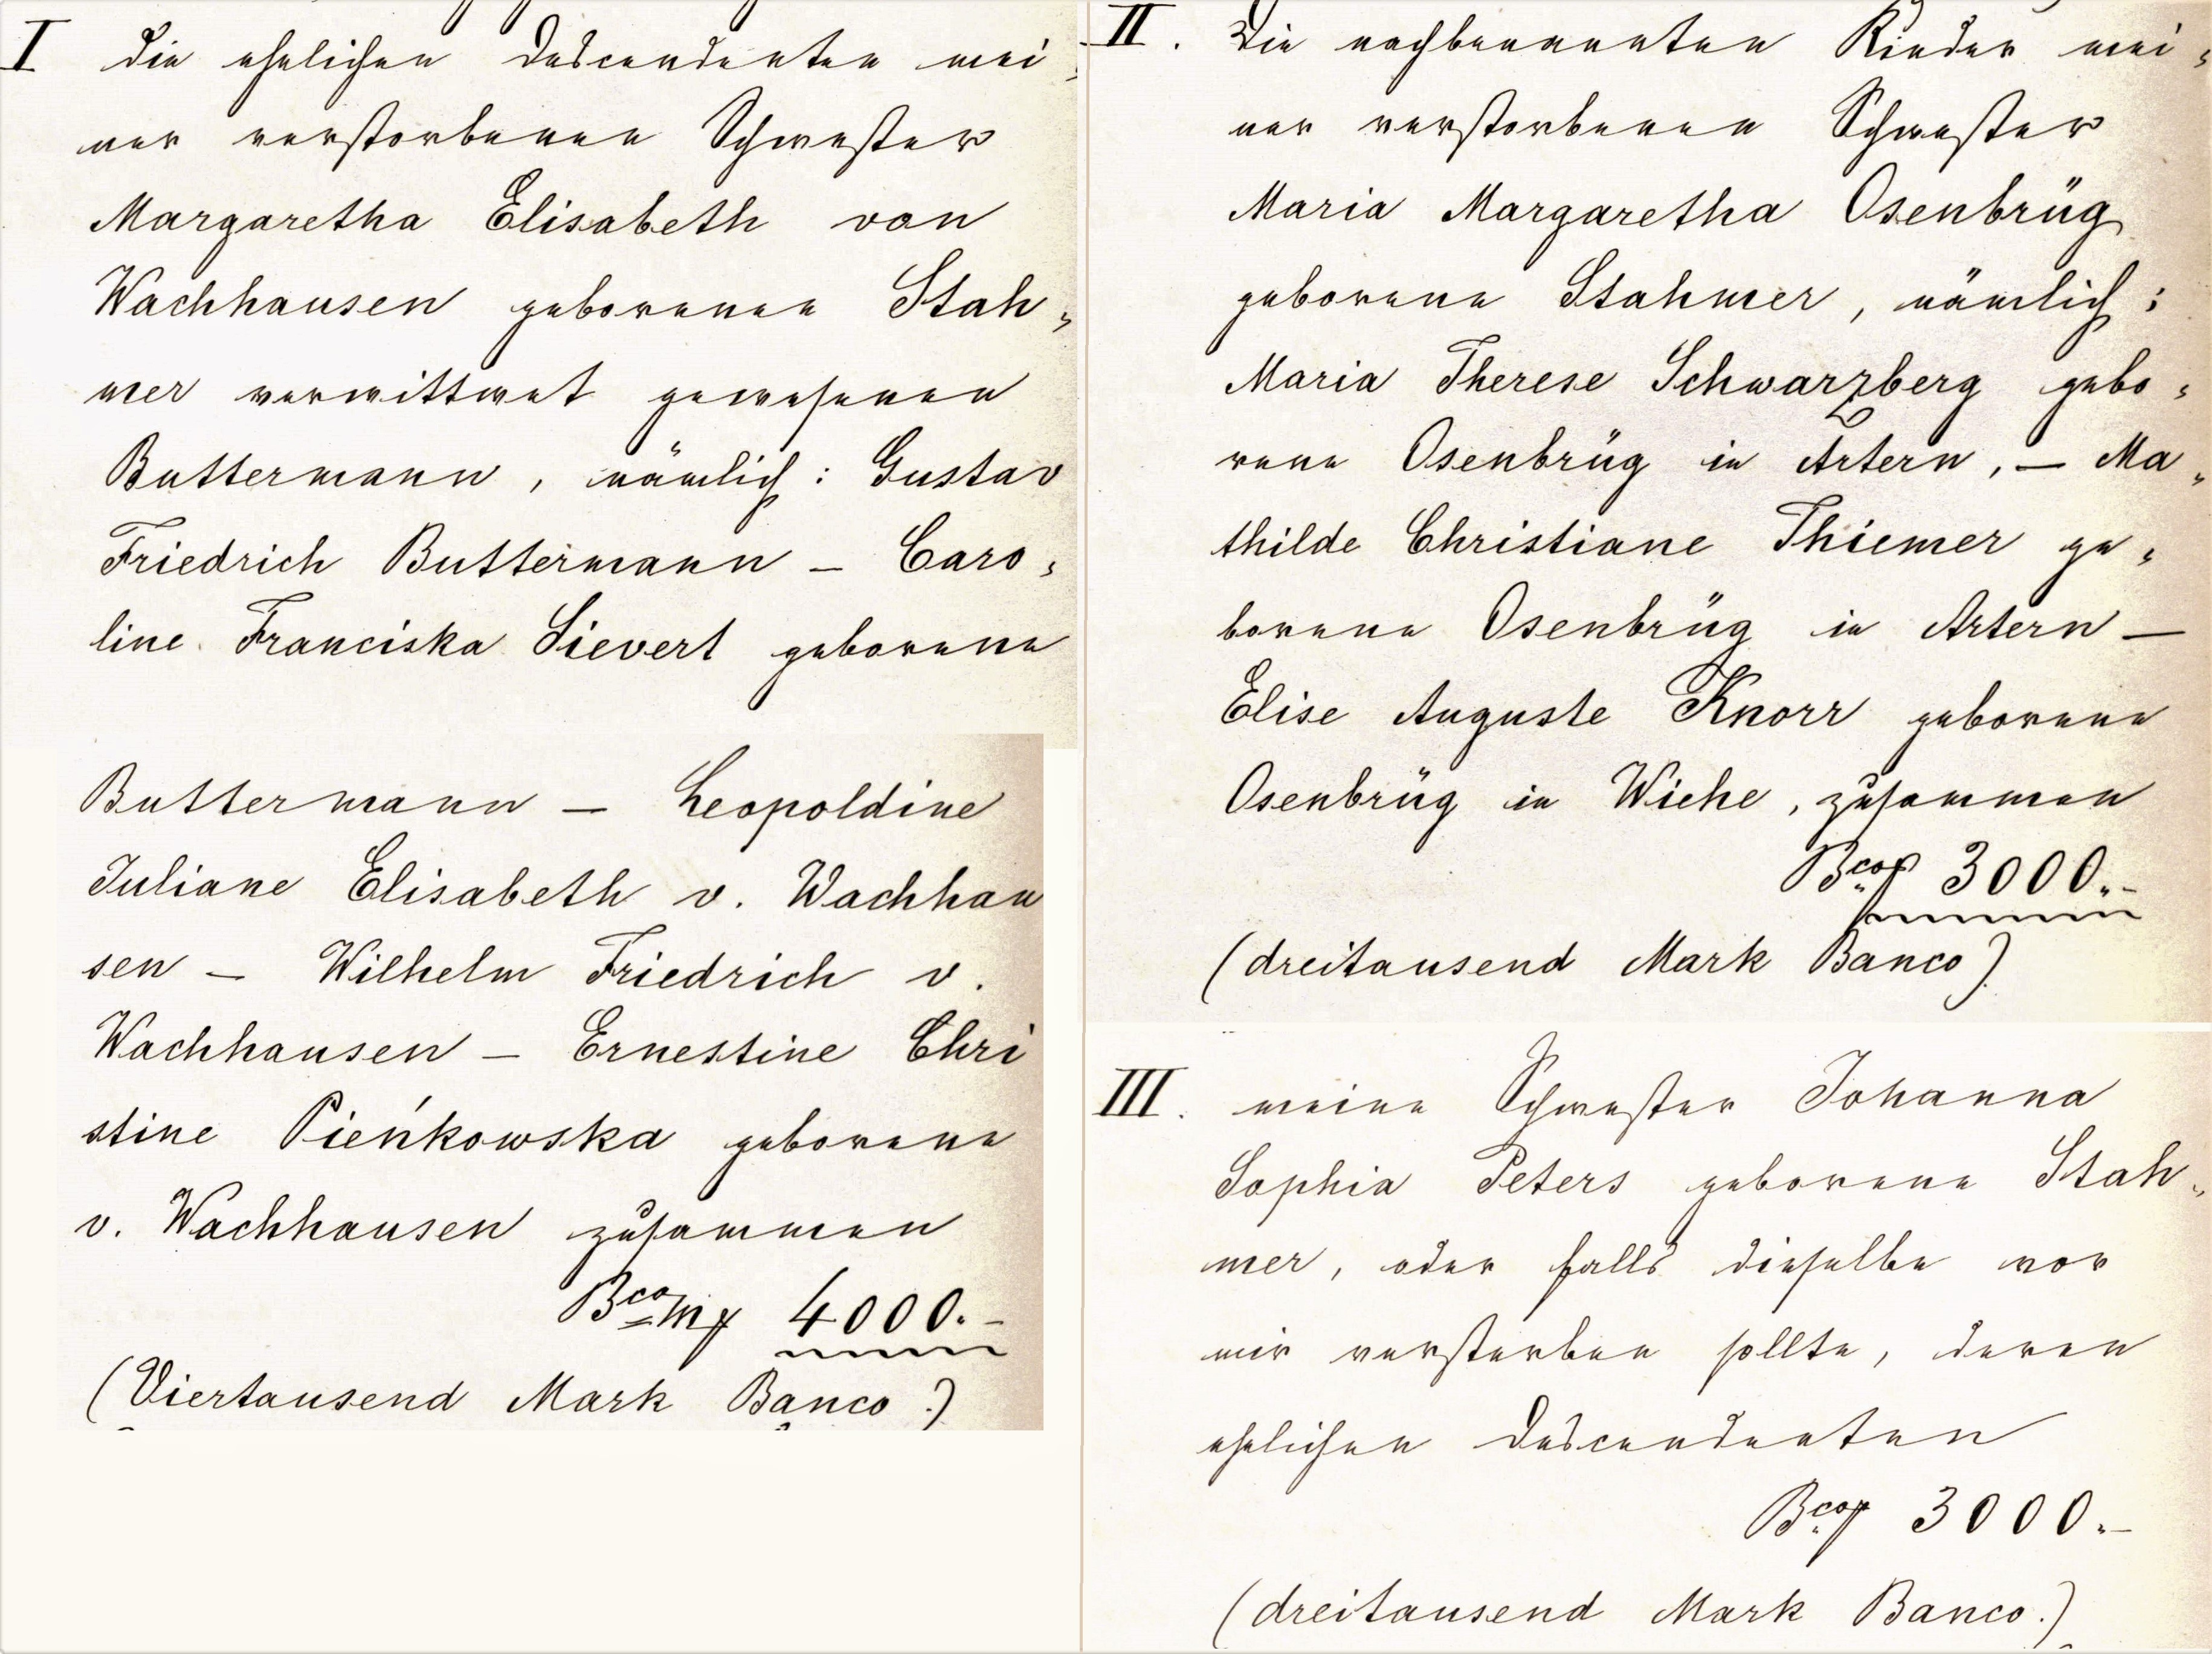 I die ehelichen Descendenten mei-
ner verstorbenen Schwester
Margaretha Elisabeth von
Wachhausen geborenen Stah-
mer verwittwet gewesenen
Buttermann, nämlich: Gustav
Friedrich Buttermann – Caro-
line Franciska Sievert geborene
Buttermann – Leopoldine
Juliane Elisabeth v. Wachhau
sen – Wilhelm Friedrich v.
Wachhausen – Ernestine Chri
stine Pieńkowska geborene
v. Wachhausen zusammen
Bco 4000.–
(Viertausend Mark Banco.)
II. Die nachbenannten Kinder mei-
ner verstorbenen Schwester
Maria Margaretha Osenbrüg
geborene Stahmer, nämlich:
Maria Therese Schwarzberg gebo-
rene Osenbrüg in Artern, – Ma-
thilde Christiane Thiemer ge-
borene Osenbrüg in Artern –
Elise Auguste Knorr geborene
Osenbrüg in Wiehe, zusammen
Bco 3000.–
(dreitausend Mark Banco)
III. meine Schwester Johanna
Sophia Peters geborene Stah-
mer, oder falls dieselbe vor
mir versterben sollte, deren
ehelichen Descendenten
Bco 3000.–
(dreitausend Mark Banco.)